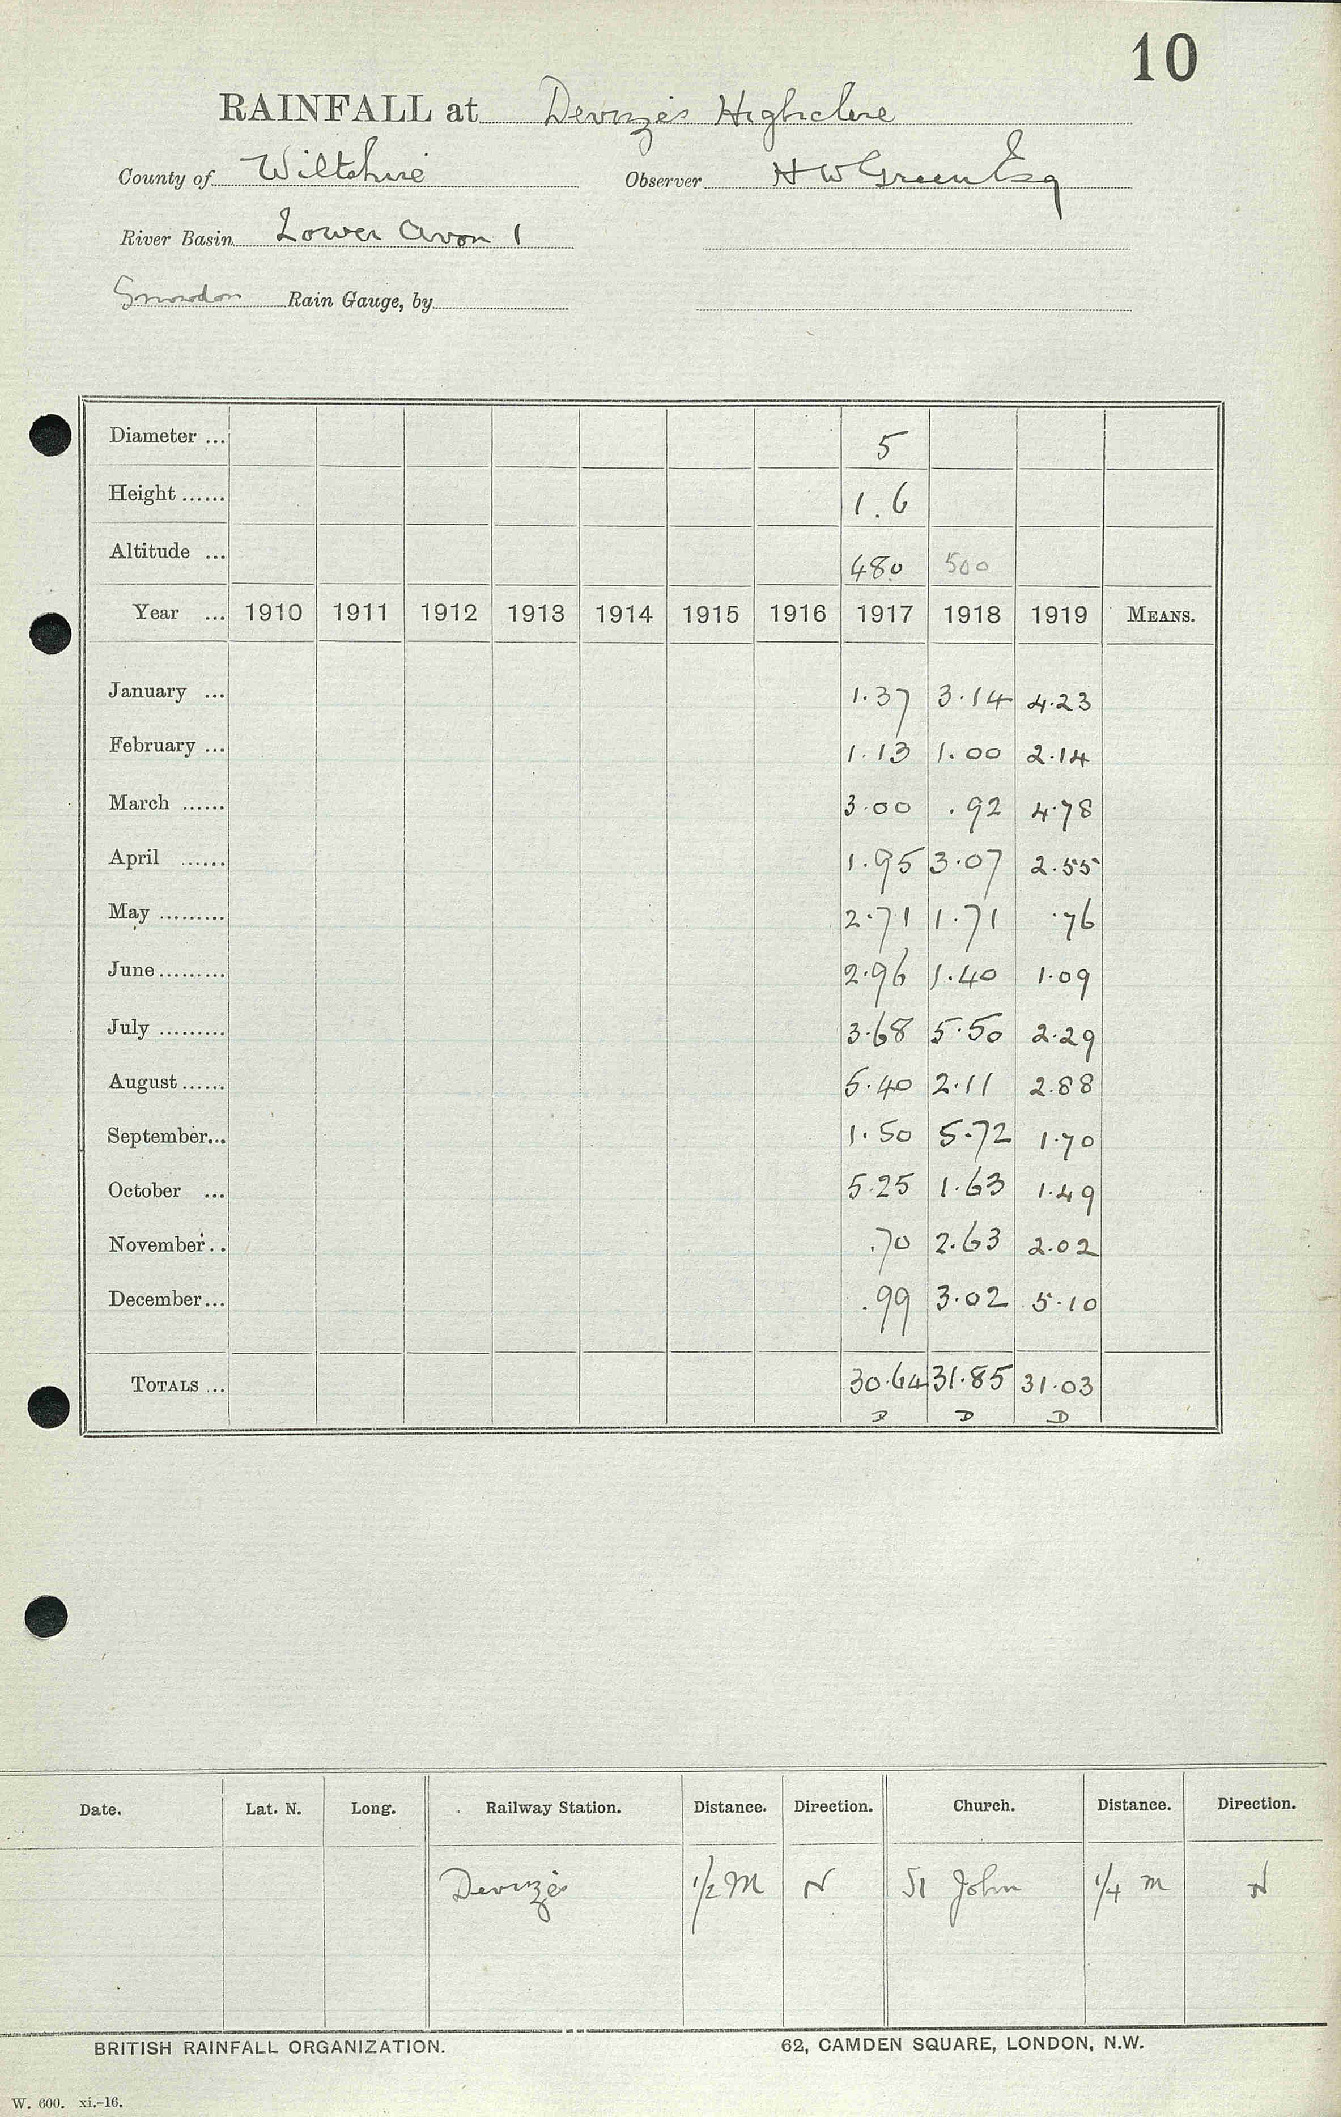 10
RAINFALL at Devizes Highclere
County of Wiltshire Observer H W Green Esq
River Basin Lower Avon 1
Snowdon Rain Gauge, by
Diameter ... 5
Height ...... 1.6
Altitude ... 480 500
Year ... 1910 1911 1912 1913 1914 1915 1916 1917 1918 1919 MEANS.
January ... 1.37 3.14 4.23
February ... 1.13 1.00 2.14
March ...... 3.00 .92 4.78
April ...... 1.95 3.07 2.55
May ......... 2.71 1.71 .76
June......... 2.96 1.40 1.09
July ......... 3.68 5.50 2.29
August ...... 5.40 2.11 2.88
September... 1.50 5.72 1.70
October ... 5.25 1.63 1.49
November .. .70 2.63 2.02
December... .99 3.02 5.10
TOTALS ... 30.64 31.85 31.03
D D D
Date. Lat. N. Long. Railway Station. Distance. Direction. Church. Distance. Direction.
Devizes 1/2 M N St John 1/4 m N
BRITISH RAINFALL ORGANIZATION. 62, CAMDEN SQUARE, LONDON, N.W.
W. 600. xi.-16.